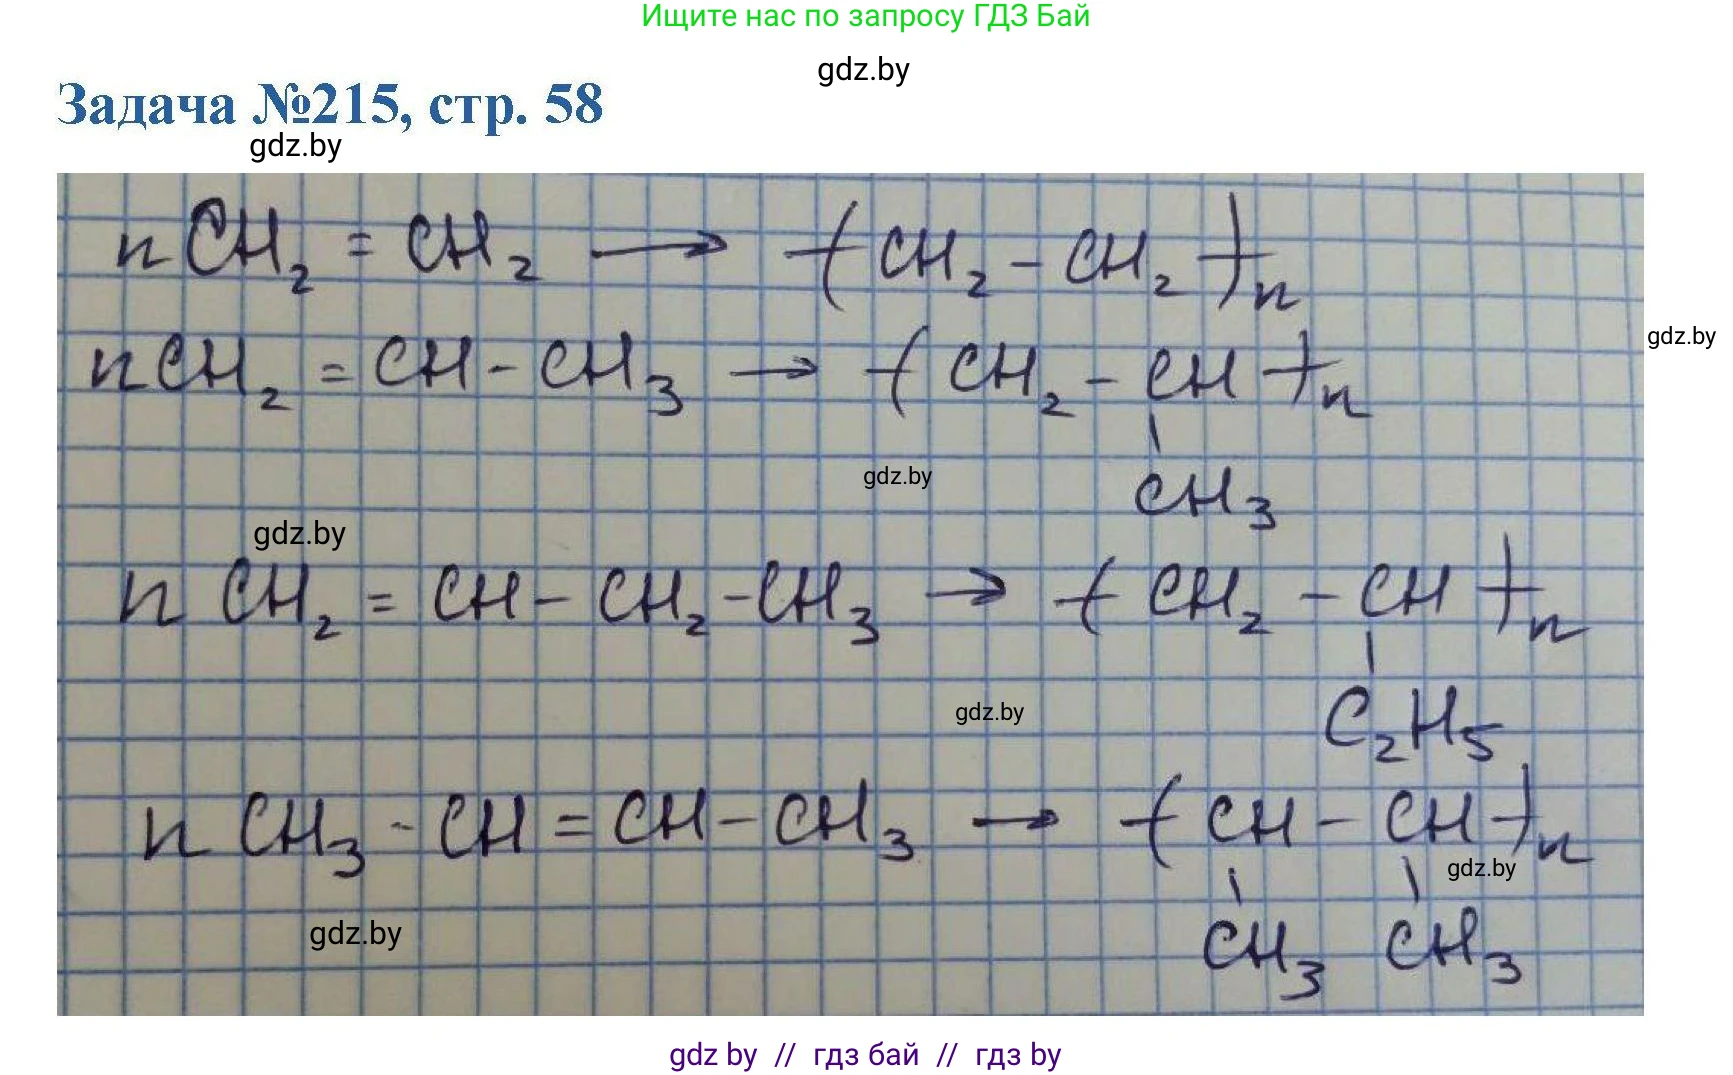 Ищите нас по запросу ГДЗ Бай
gdz.by
Задача №215, стр. 58
gdz.by
n CH₂ = CH₂ → -(CH₂ - CH₂)-n
gdz.by
n CH₂ = CH - CH₃ → -(CH₂ - CH)-n
|
gdz.by
CH₃
gdz.by
n CH₂ = CH - CH₂ - CH₃ → -(CH₂ - CH)-n
|
gdz.by
C₂H₅
n CH₃ - CH = CH - CH₃ → -(CH - CH)-n
gdz.by
| |
gdz.by
CH₃ CH₃
gdz by // гдз бай // гдз by